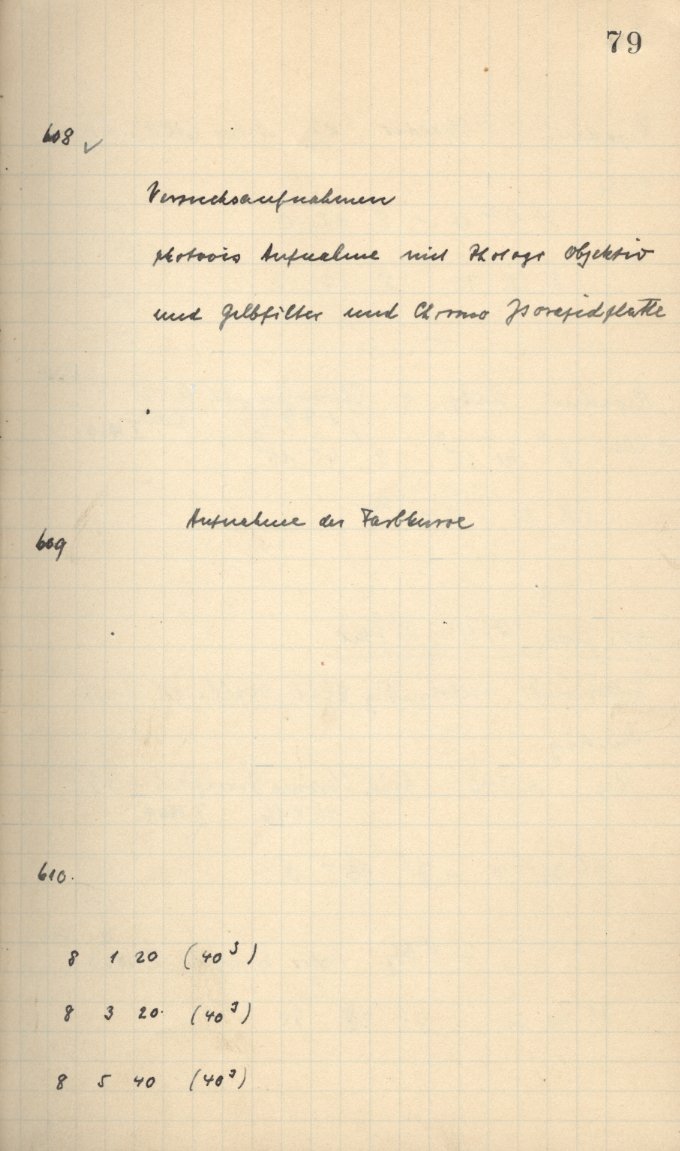 79
608 ✓
Versuchsaufnahmen
photovis Aufnahme mit Photogr Objektiv
und Gelbfilter und Chromo Isorapidplatte
Aufnahme der Farbkurve
609
610.
8 1 20 (40 s)
8 3 20. (40 s)
8 5 40 (40 s)